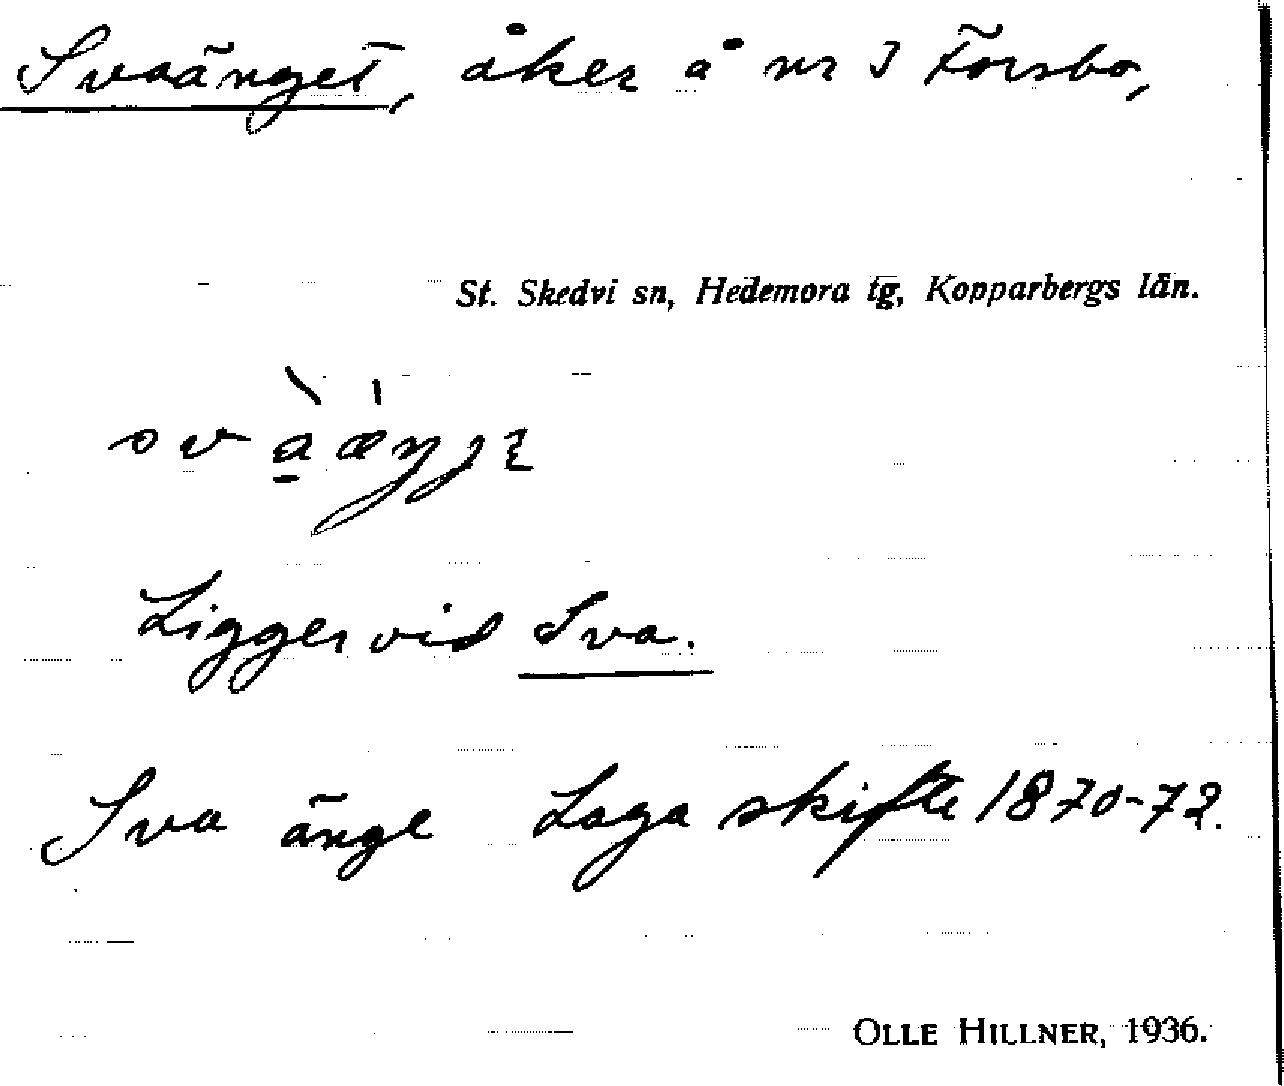 Svaänget, åker å nr 3 Forsbo,
St. Skedvi sn, Hedemora tg, Kopparbergs län.
Ligger vid Sva.
Sva änge Laga skifte 1870-72.
OLLE HILLNER, 1936.